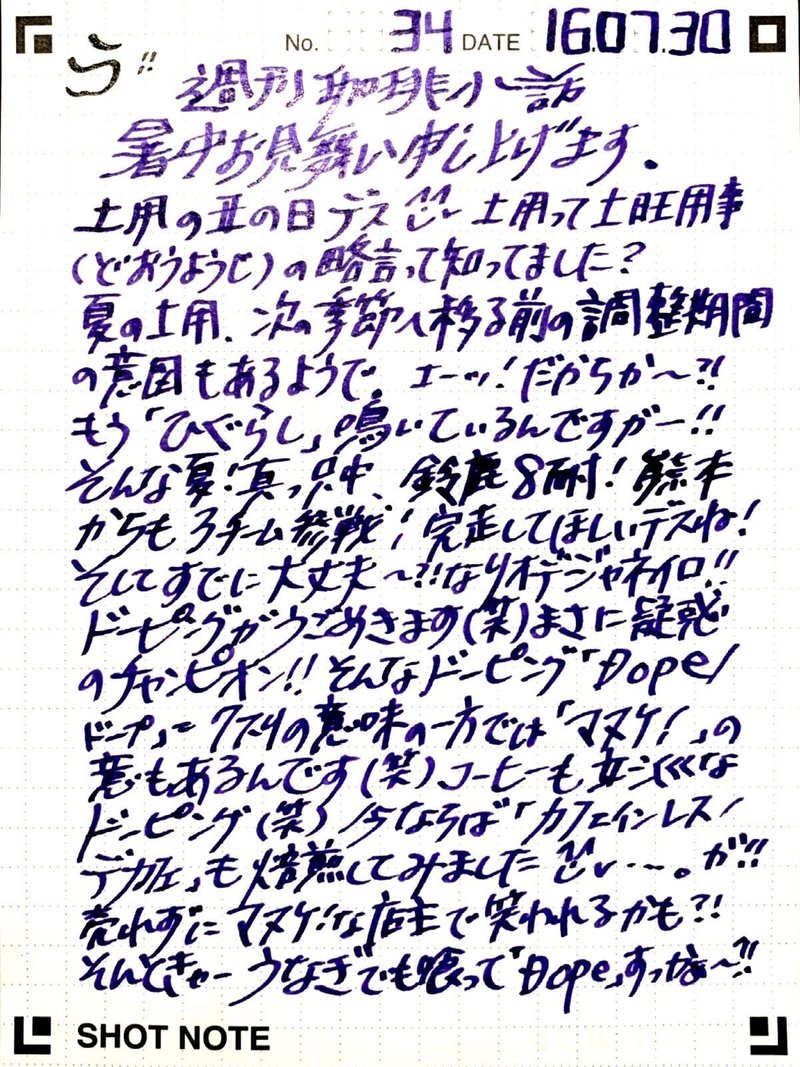 No. 34 DATE 16.07.30
う!!
週刊珈琲小話
暑中お見舞い申し上げます。
土用の丑の日デス 土用って土旺用事
(どおうようじ)の略言って知ってました?
夏の土用、次の季節へ移る前の調整期間
の意図もあるようで。エーッ!だからか〜?!
もう「ひぐらし」鳴いているんですがー!!
そんな夏!真っ只中、鈴鹿8耐!熊本
からも3チーム参戦!完走してほしいデスね!
そしてすでに大丈夫〜?!なリオデジャネイロ!!
ドーピングがうごめきます(笑)まさに疑惑
のチャンピオン!!そんなドーピング「Dope/
ドープ」にクスリの意味の一方では「マヌケ!」の
意もあるんです(笑)コーヒーも な
ドーピング(笑)今ならば「カフェインレス/
デカフェ」も焙煎してみました …〜。が!!
売れずにマヌケ!な店主で笑われるかも?!
そんときゃーうなぎでも喰って「Dope」すっかな〜?!
SHOT NOTE